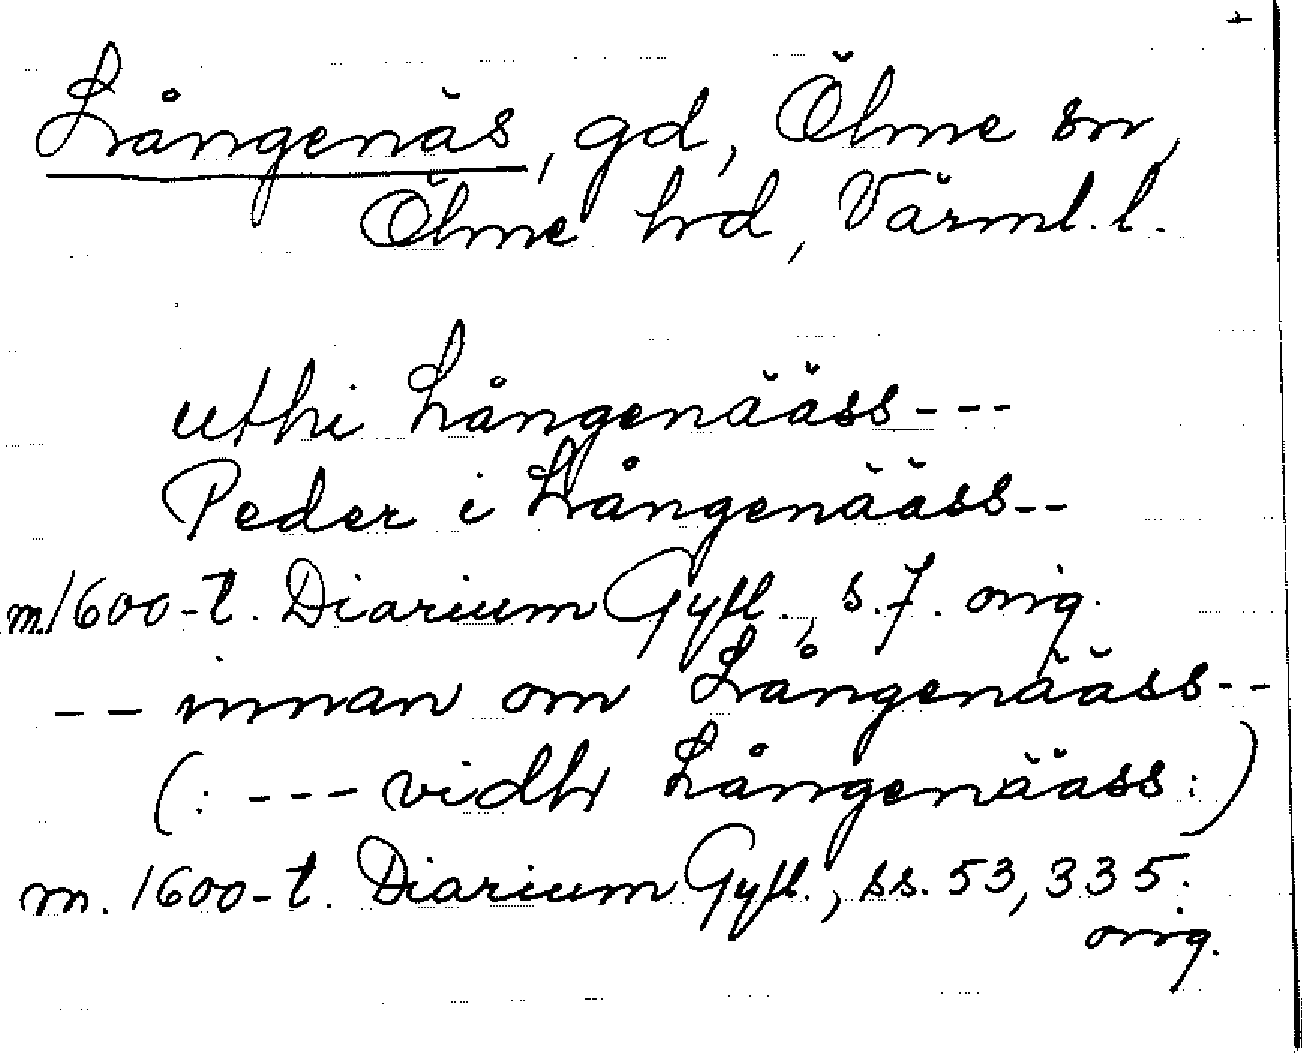 +
Långenäs, gd, Ölme sn,
Ölme hd, Värml. l.
uthi Långenääss---
Peder i Långenääss--
m/600-t. Diarium Gyll., s. 7. orig.
-- innan om Långenääss--
(: --- vidh Långenääss :)
m. 1600-t. Diarium Gyll., ss. 53, 335.
orig.